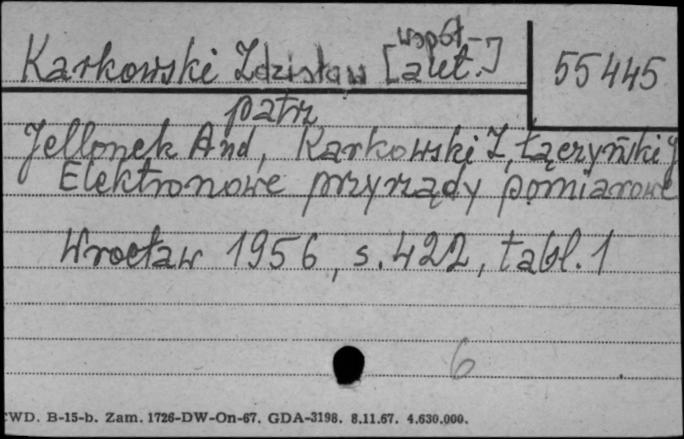 Karkowski Zdzisław [współ-
aut.]
55445
patrz
Jellonek And, Karkowski Z, Łączyński J
Elektronowe przyrządy pomiarowe
Wrocław 1956, s. 422, tabl. 1
6
CWD. B-15-b. Zam. 1726-DW-On-67. GDA-3198. 8.11.67. 4.630.000.